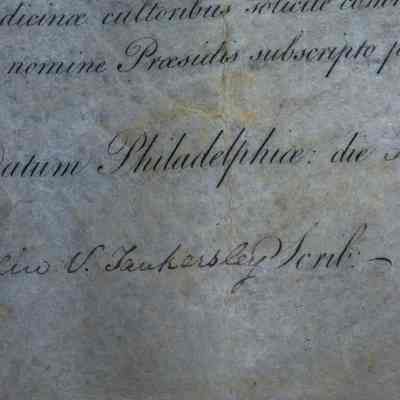 dicinæ cultoribus solicite com
nomine Præsidis subscripto p
Datum Philadelphiæ: die
V. Tankersley Scrib: —